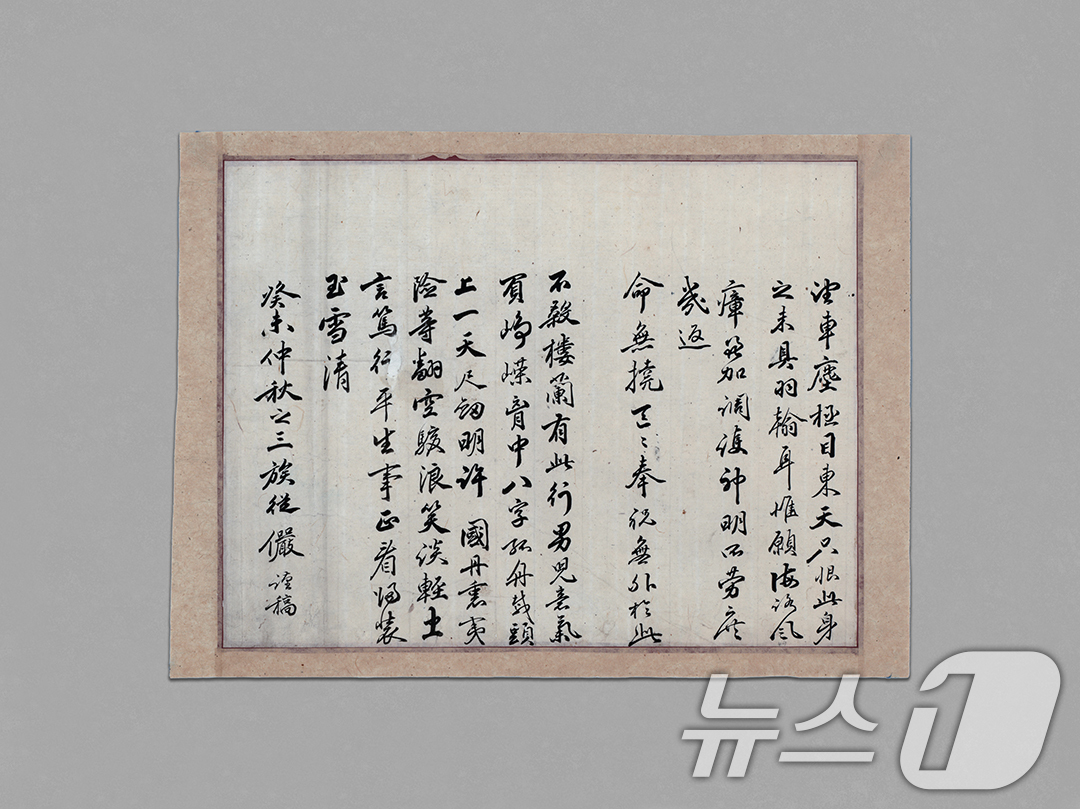 望車塵極目東天只恨此身
之未具羽翰耳惟願海路風
瘴益加調護神明所勞庶
幾返
命無撓區〻奉祝無外於此
不殺樓蘭有此行男兒意氣
崢嶸胷中八字孤舟頭
上一天尺劒明許國丹衷夷
險等翻空駭浪笑談輕土
言篤行平生事正看歸裝
玉雪清
癸未仲秋之三族從儼謹稿
뉴스1